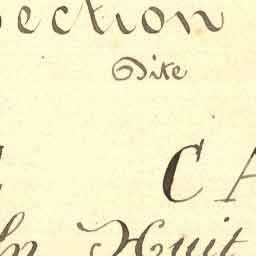 ection
Dite
CA
In Huit